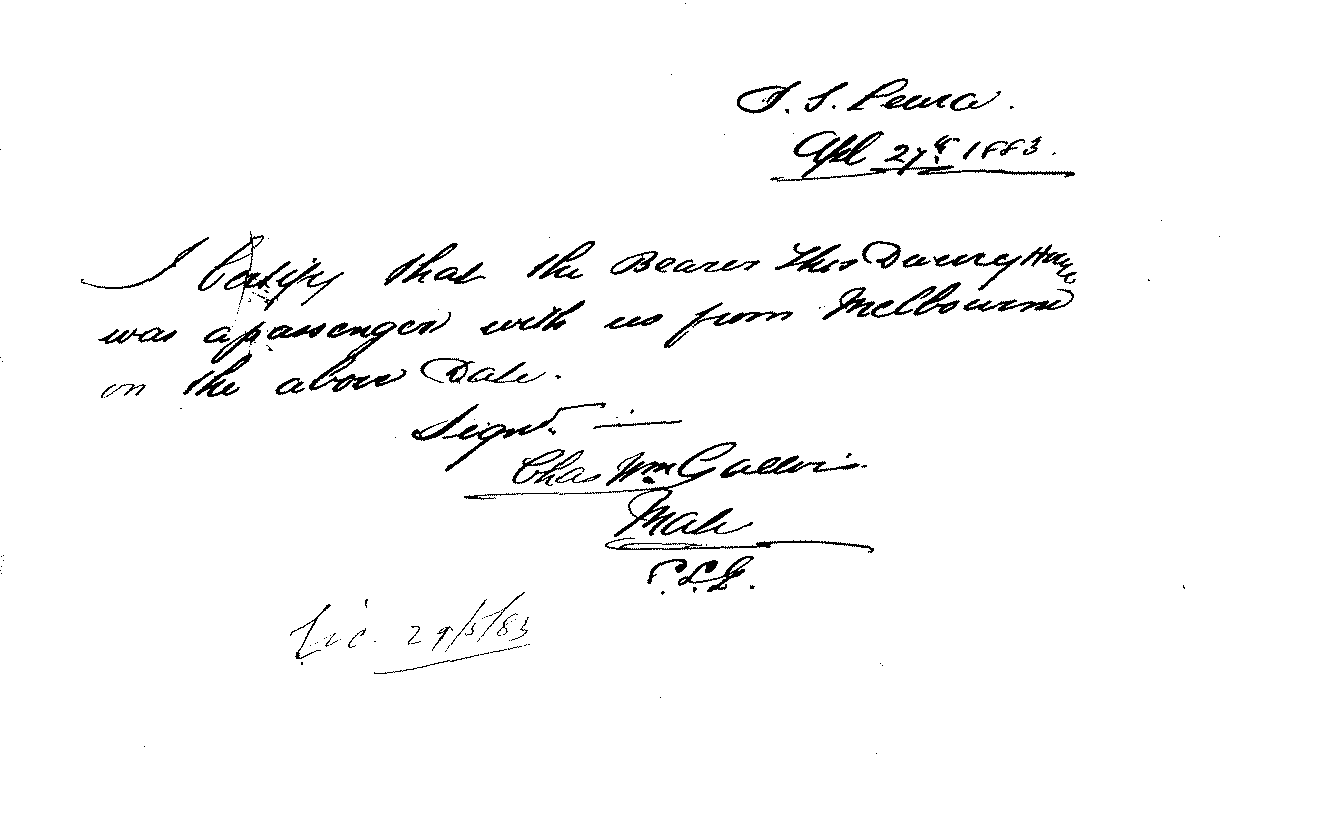 S. S. Penna.
Apl 27th 1883.
I Certify that the Bearer Thos
was a passenger with us from Melbourne
on the above Date.
Signd. —
Chas Wm
Mate
Lic. 29/5/83